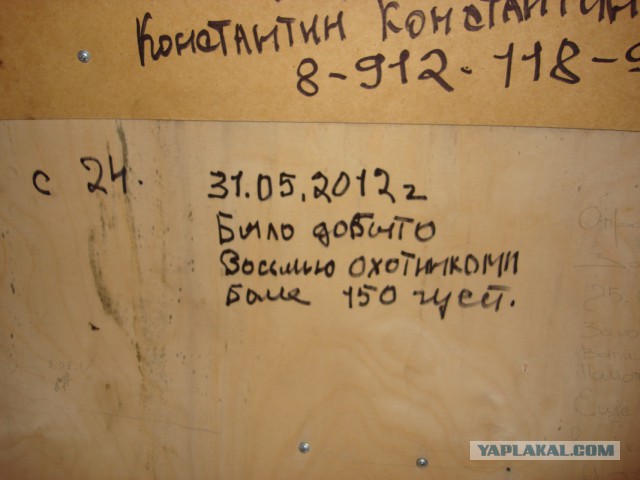 Константин Константин
8-912-118-9
с 24. 31.05.2012г
Было добыто
Восемью охотниками
Боле 150 гусей.
YAPLAKAL.COM